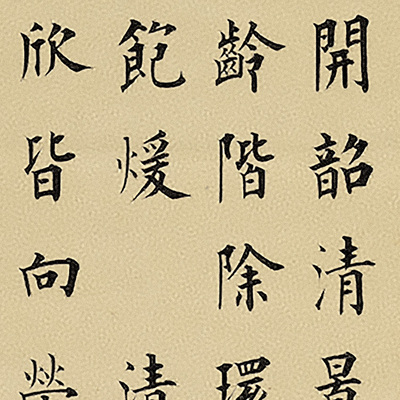 開韶清景
齡階除環
飽煖 清
欣皆向榮